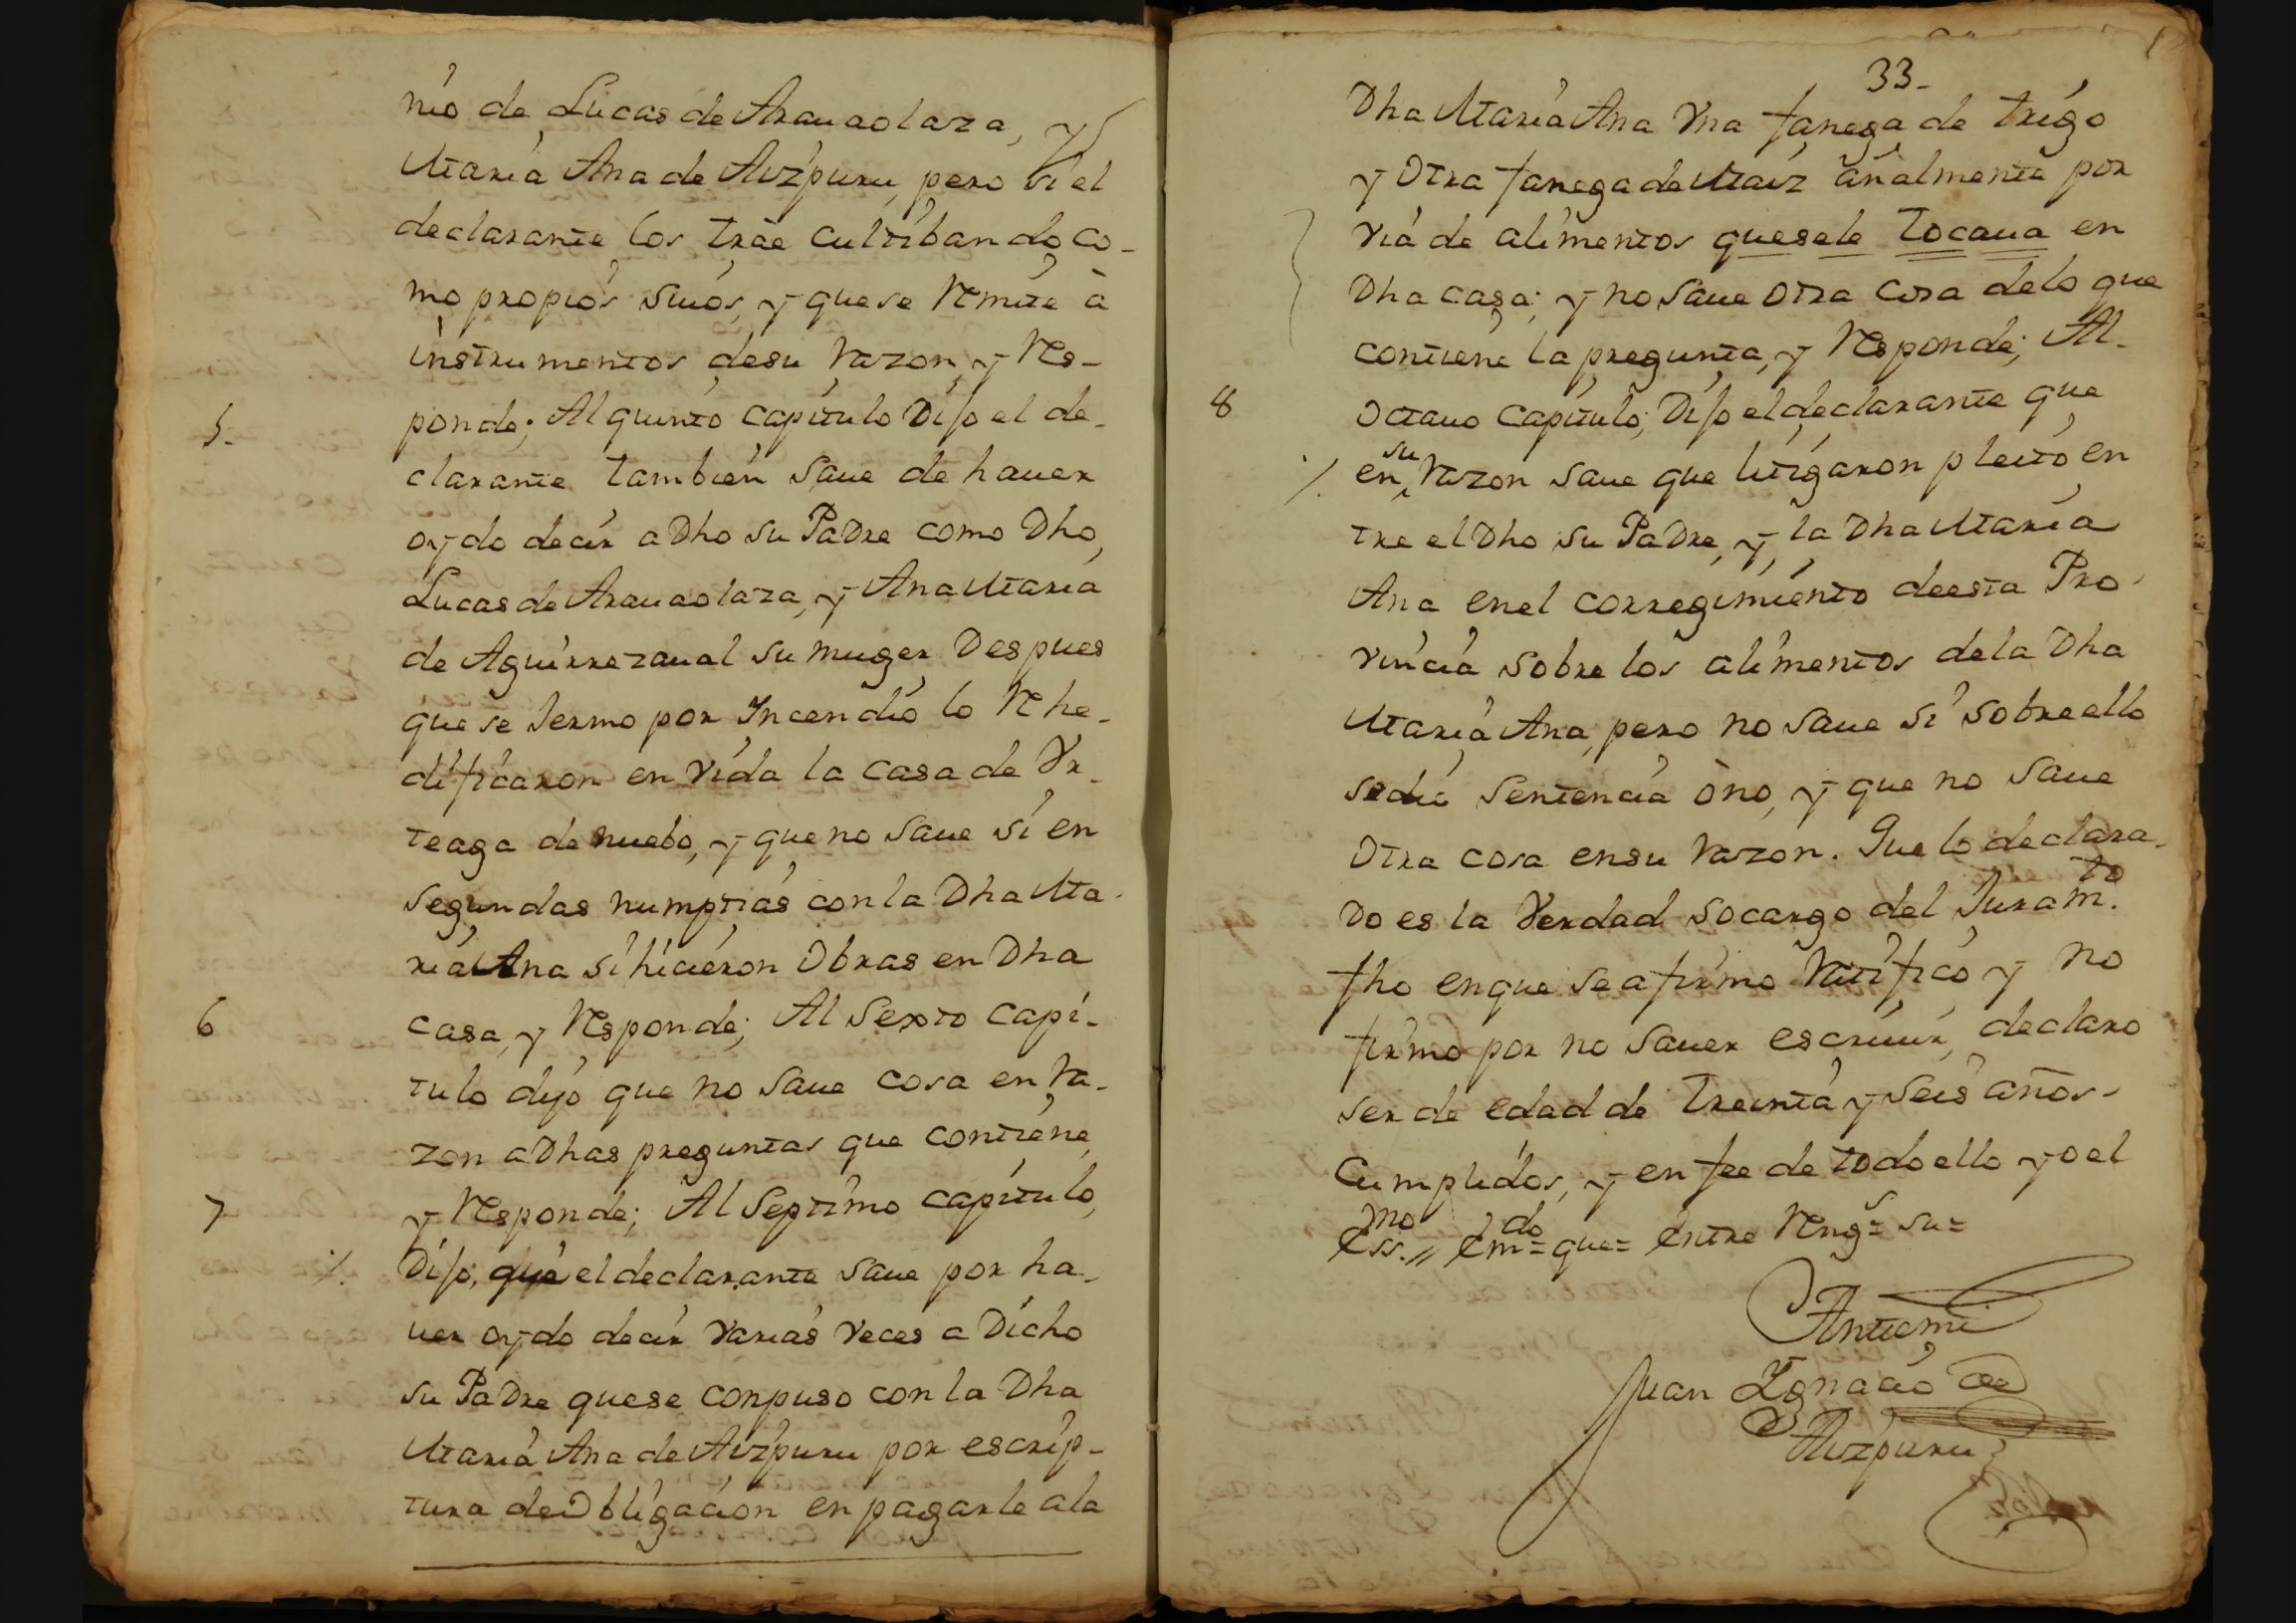 nio de Lucas de Arauaolaza, y
Maria Ana de Aizpuru, pero si el
declarante los trae cultibando co-
mo propios suios, y que se remite à
instrumentos desu razon, y res-
5.
ponde; Al quinto capitulo Dijo el de-
clarante tambien saue de hauer
oydo decir a Dho su Padre como Dho
Lucas de Arauaolaza, y Ana Maria
de Aguirrezaual su muger Despues
que se Iermo por Incendio lo Rehe-
dificaron en vida la casa de Vr-
teaga de nuebo, y que no saue si en
segundas numptias con la Dha Ma-
ria Ana si hicieron Obras en Dha
6
casa, y responde; Al sexto capi-
tulo dijo que no saue cosa en ra-
zon a Dhas preguntas que contiene,
7
y responde; Al septimo capitulo,
./. Dijo, que el declarante saue por ha-
uer oydo decir varias veces a Dicho
su Padre quese conpuso con la Dha
Maria Ana de Aizpuru por escrip-
tura de Obligacion en pagarle ala
33-
Dha Maria Ana Vna fanega de trigo
y Otra fanega de Maiz añalmente por
via de alimentos quesele tocaua en
Dha casa; y no saue Otra cosa delo que
contiene la pregunta, y responde; Al-
8
Octauo Capitulo; Dijo el declarante que
su
./. en razon saue que litigaron pleito en
tre el Dho su Padre, y la Dha Maria
Ana enel corregimiento deesta Pro-
vincia sobre los alimentos dela Dha
Maria Ana, pero no saue si sobre ello
sedio sentencia òno, y que no saue
Otra cosa ensu razon. Que lo declara-
do es la Verdad socargo del Juram.to
fho enque se afirmo Ratifico y no
firmo por no sauer escriuir, declaro
ser de edad de treinta y seis años-
Cumplidos, y en fee de todo ello yo el
Ess.no // Em.do= que= Entre Reng.s= su=
Antemi
Juan Ignacio de
Aizpuru